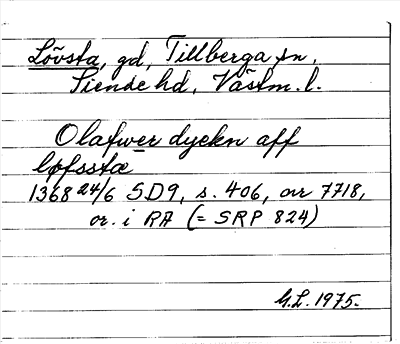 Lövsta, gd, Tillberga sn,
Siende hd, Västm. l.
Olafwer dyekn aff
løfsstæ
1368 24/6 SD9, s. 406, nr 7718,
or. i RA (= SRP 824)
G.L. 1975.